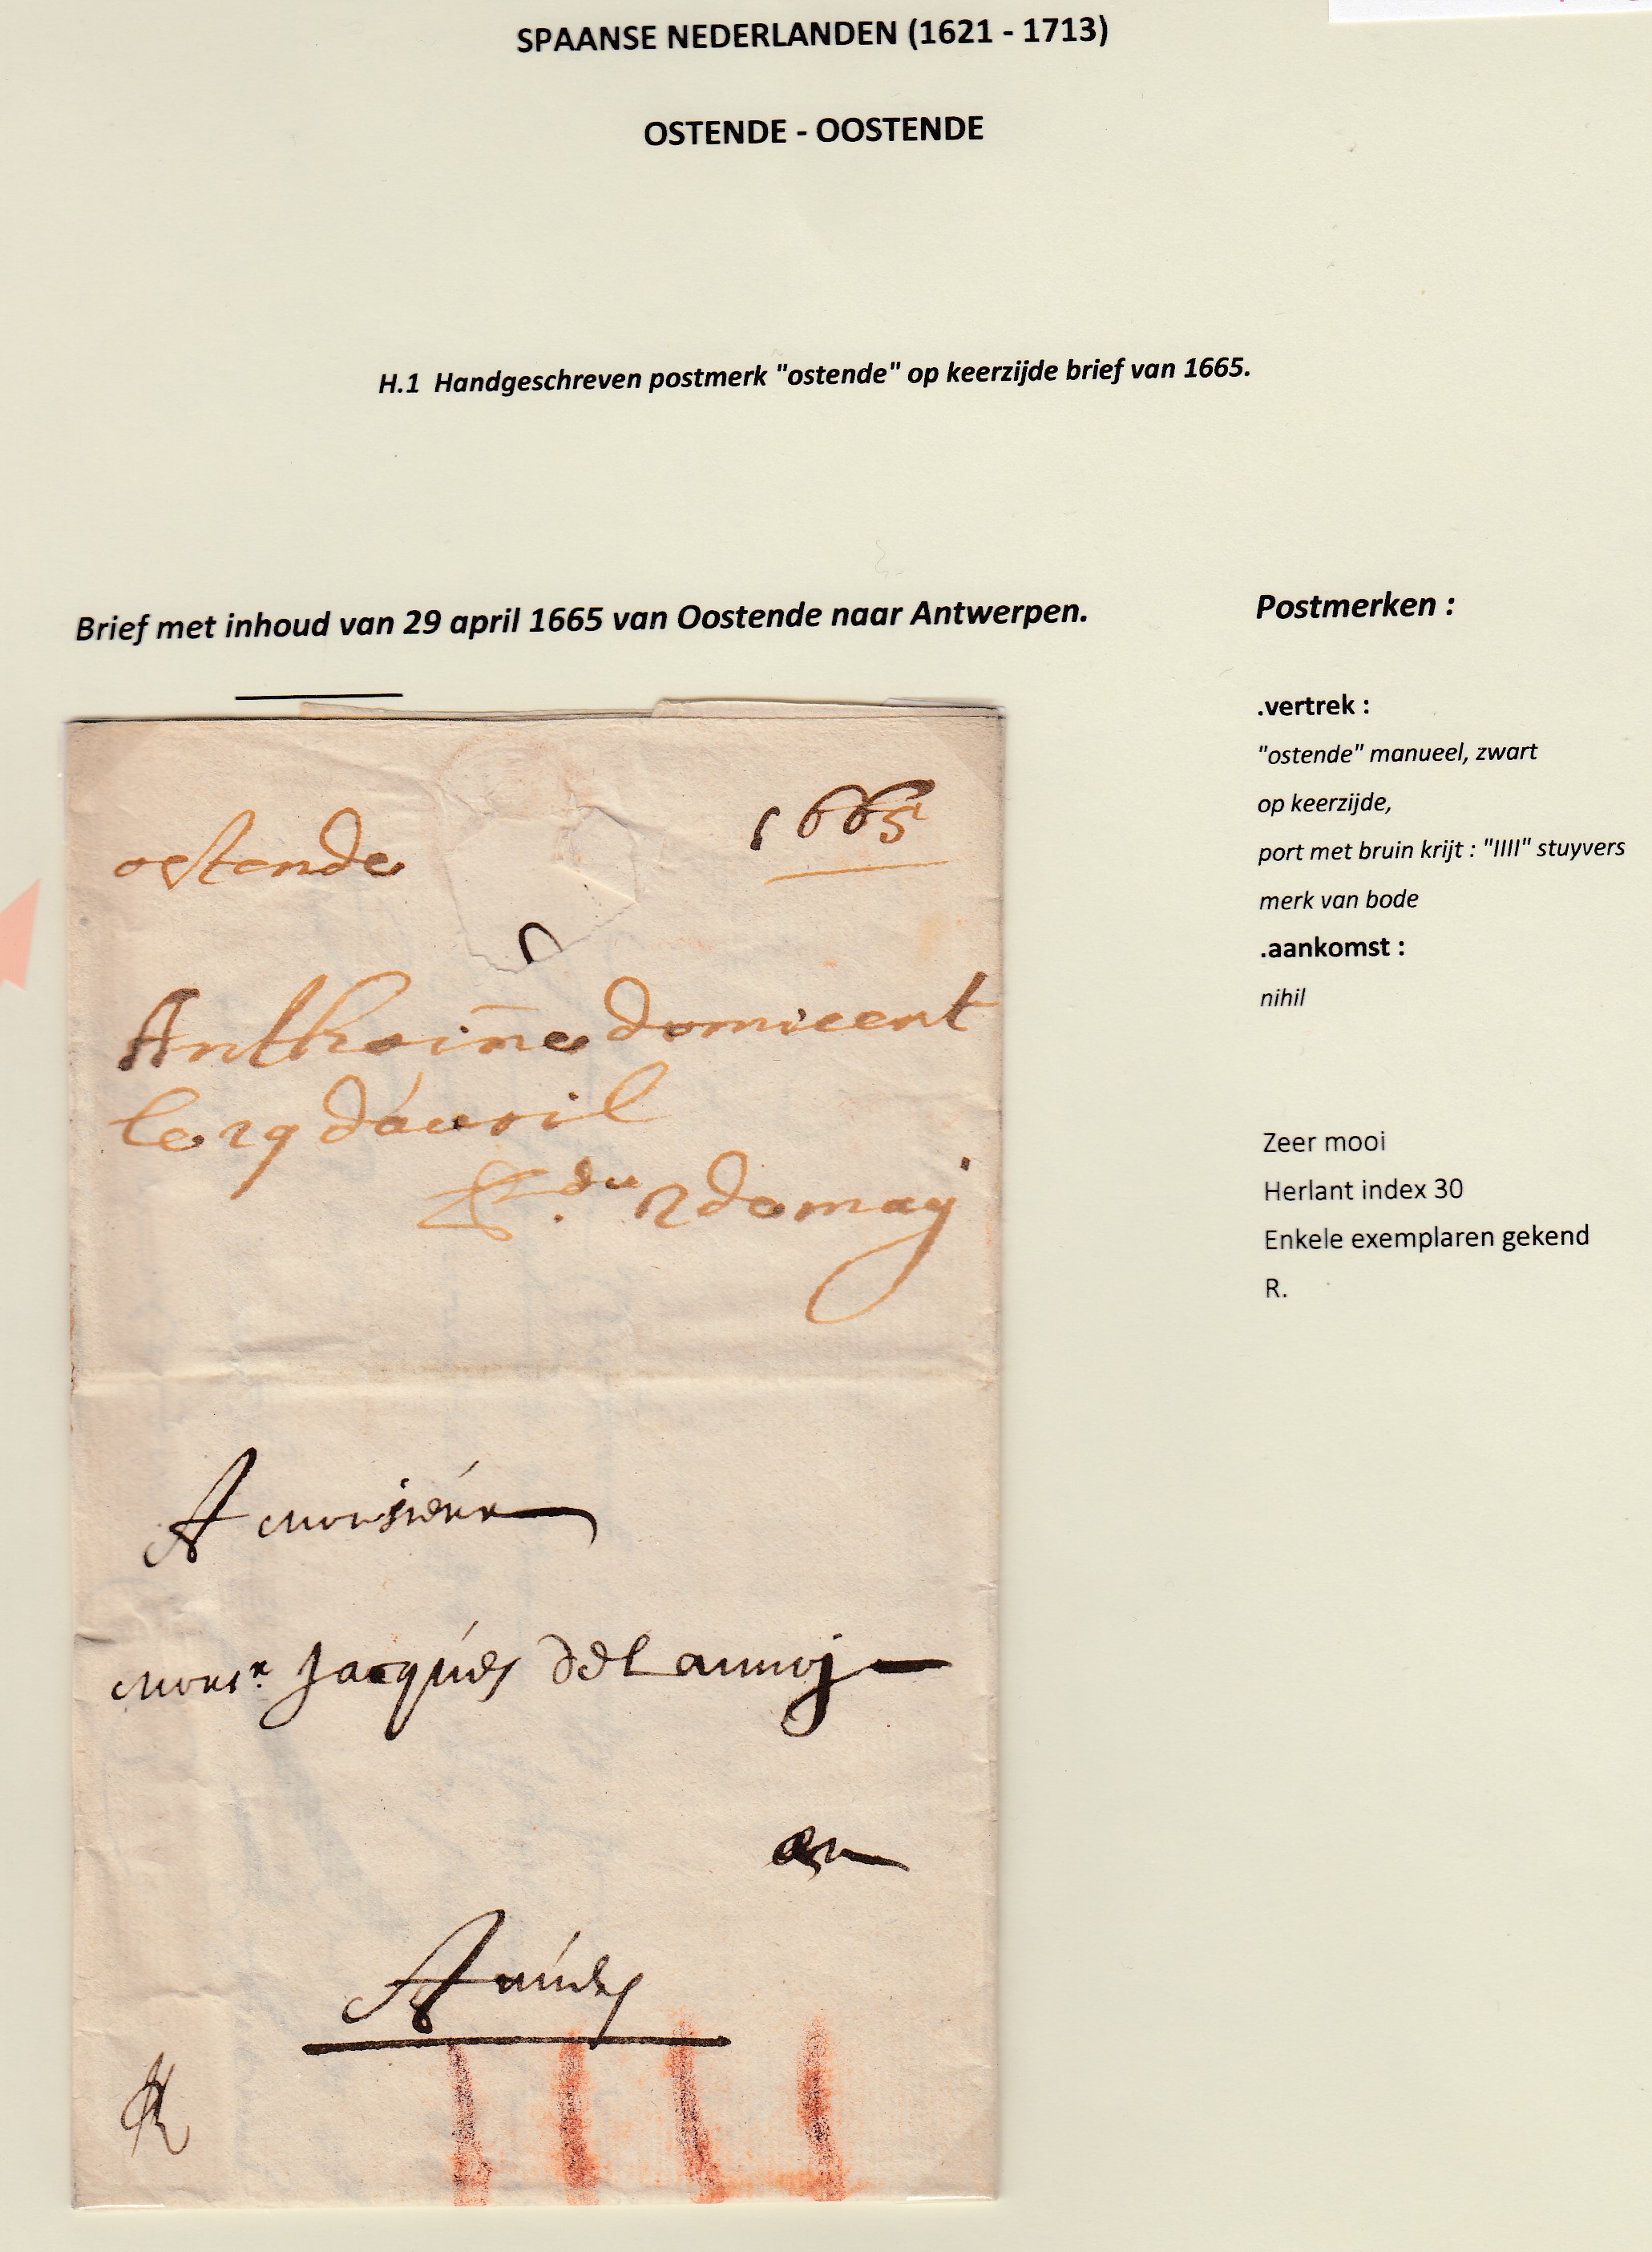 SPAANSE NEDERLANDEN (1621 - 1713)
OSTENDE - OOSTENDE
H.1 Handgeschreven postmerk "ostende" op keerzijde brief van 1665.
Brief met inhoud van 29 april 1665 van Oostende naar Antwerpen.
Postmerken :
.vertrek :
"ostende" manueel, zwart
op keerzijde,
port met bruin krijt : "IIII" stuyvers
merk van bode
.aankomst :
nihil
Zeer mooi
Herlant index 30
Enkele exemplaren gekend
R.
1665
ostende
Anthoine domicent
le 29 dauril
du 2 de may
A monsieur
Monsr. Jacques de Lannoy
en
IIII